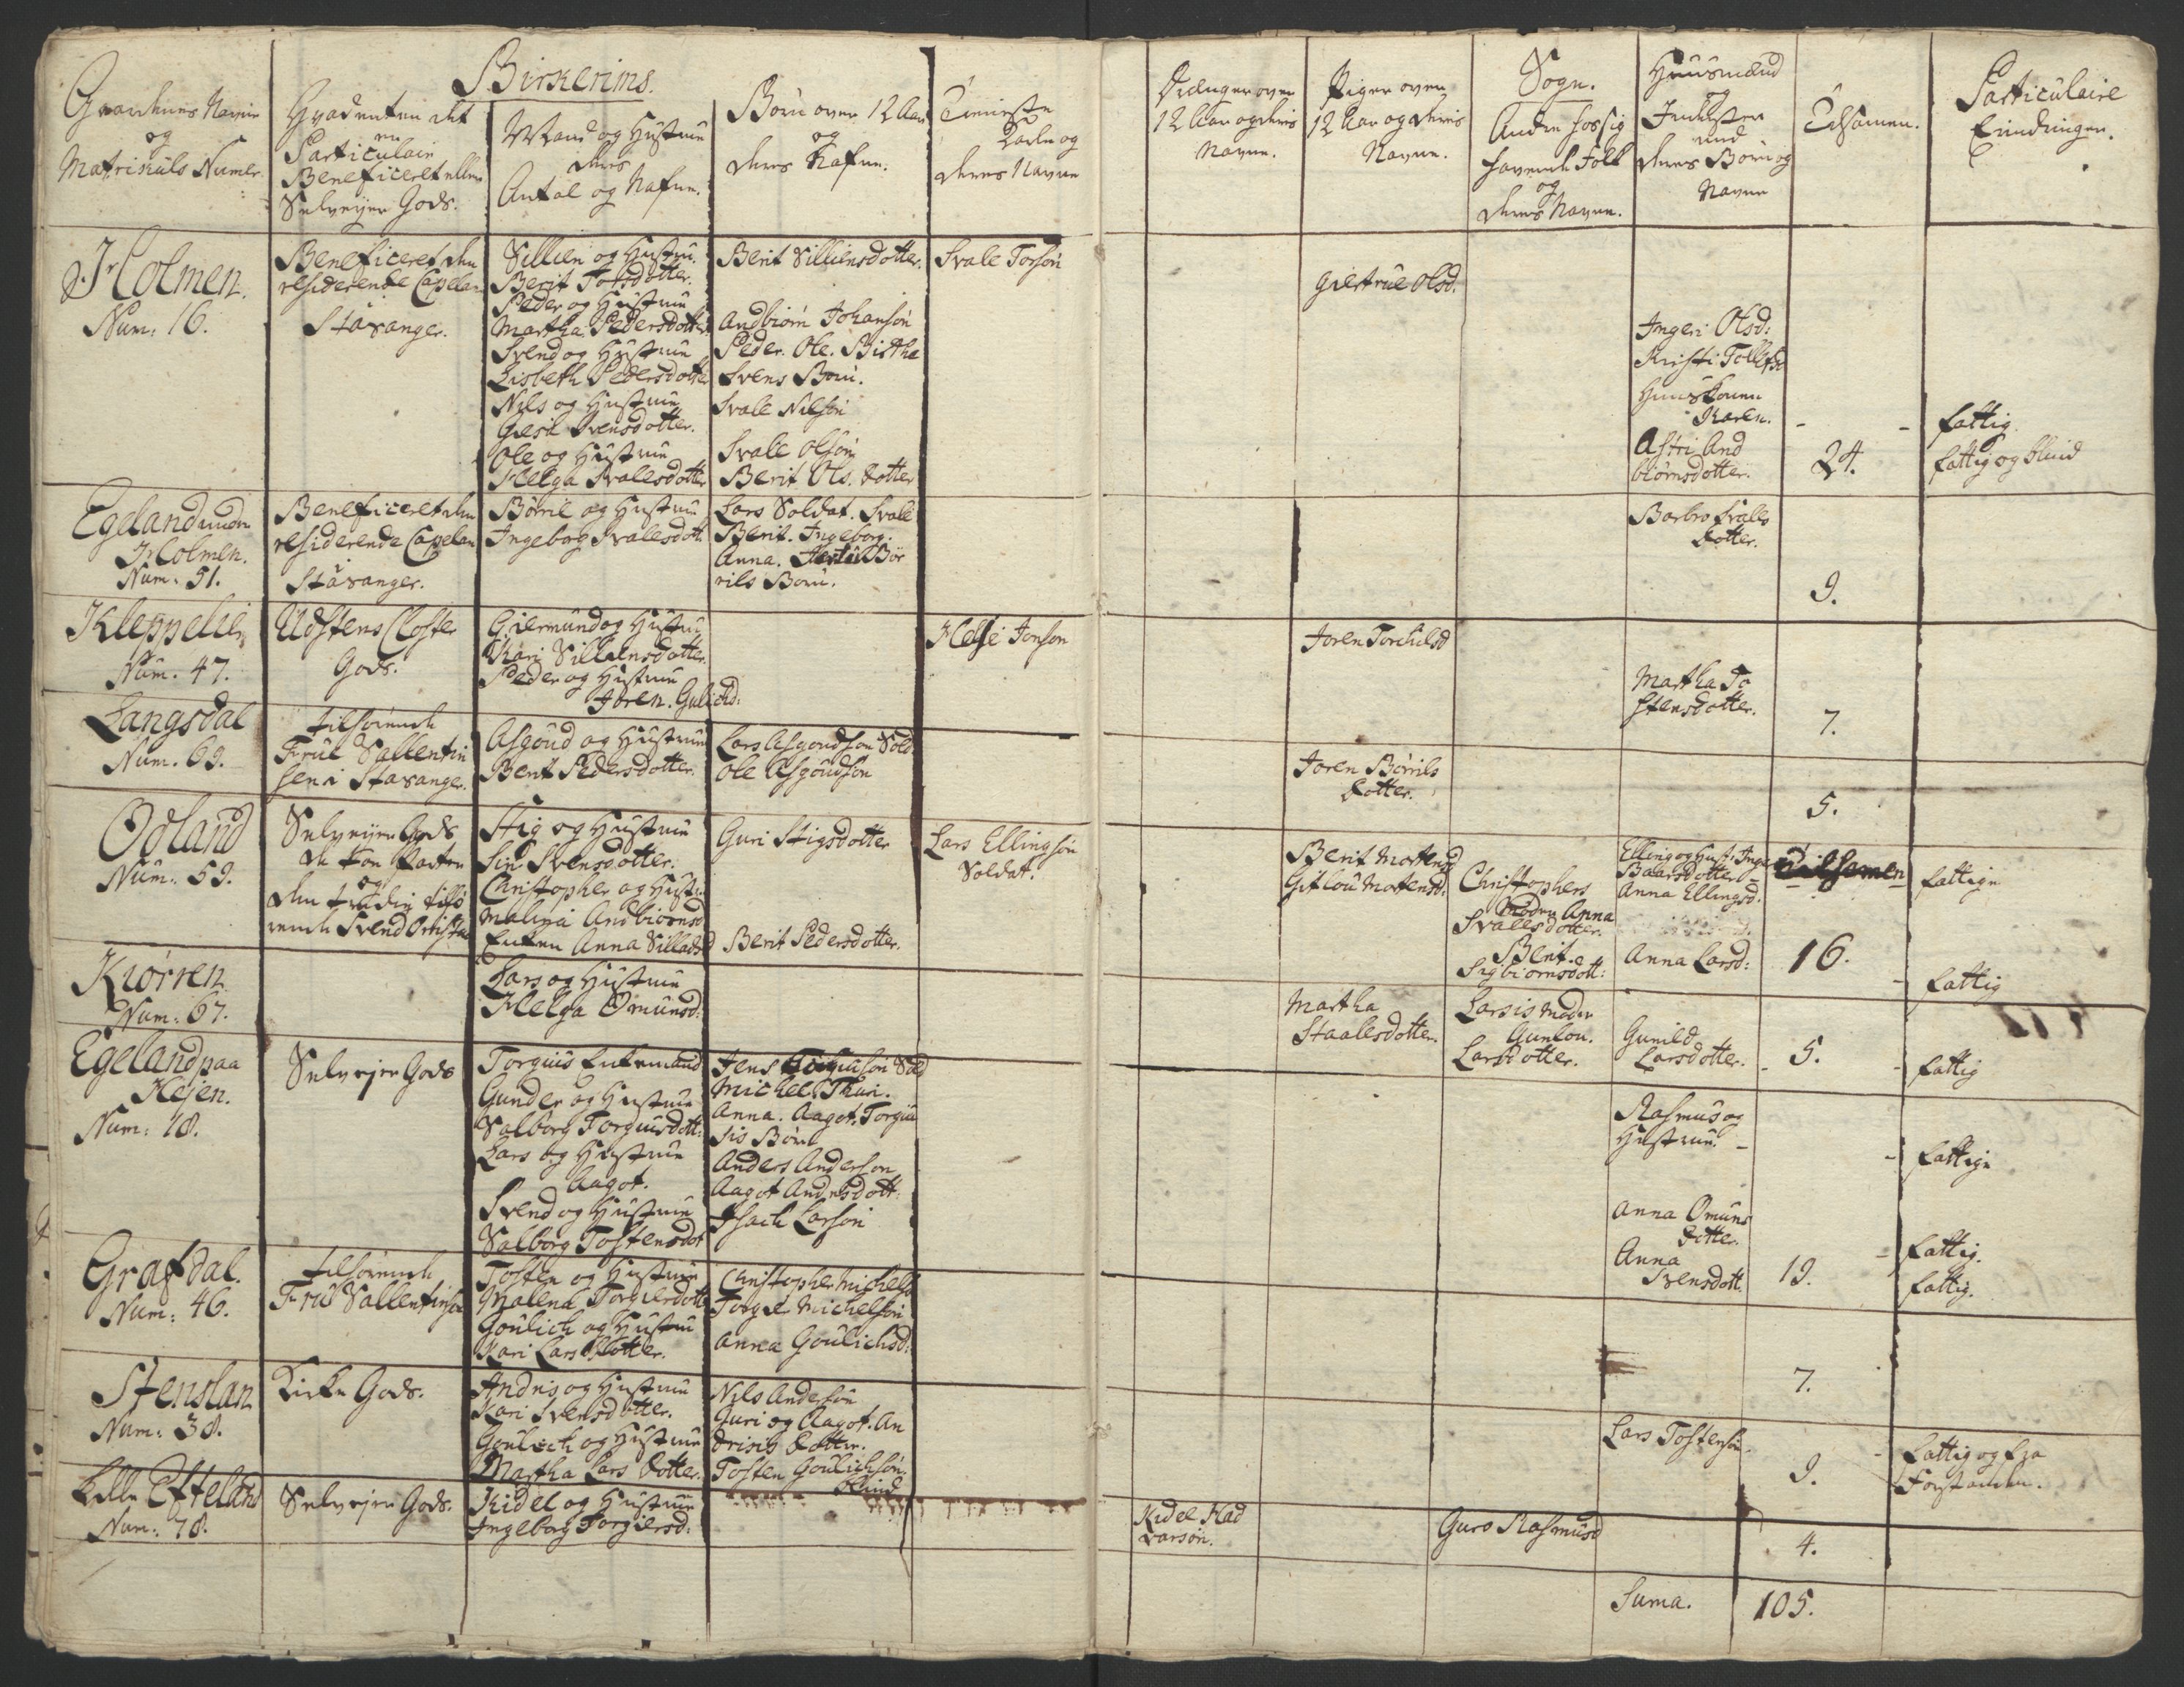 Birkerims.
Sogn.
Gaardenes Navne
og
Matriculs Numer.
Hvadenten det
er
Particulair
Beneficeret eller
Selveyer Gods.
Mand og Hustrue
deres
Antal og Nafne.
Børn over 12 Aar
og
deres Nafne.
Tieneste
Karle og
deres Navne
Drænger over
12 Aar og deris
Navne.
Piger over
12 Aar og deris
Navne.
Andre hos sig
havende Folk
og
deres Navne.
Huusmænd
og
Inderster
med
deres Børn og
Navne
Tilsamen.
Particulaire
Erindringer.
Holmen.
Num: 16.
Beneficeret den
residerende Capelan
Stavanger.
Sillien og Hustru.
Berit Torsdotter.
Peder og Hustrue
Martha Pedersdotter
Svend og Hustrue
Lisbeth Pedersdotter
Nils og Hustrue
Giesil Svensdotter.
Ole og Hustrue
Helga Svalesdotter
Berit Silliensdotter.
Andbiørn Johansøn
Peder. Ole. Birtha
Svens Børn.
Svale Nilsøn
Svale Olsøn
Berit Ols. dotter
Svale Torsøn
Giertrue Olsd.
Ingeri Olsd:
Kirsti Tollefsd
Huuskonen
Karen.
Astri And
biørnsdotter.
24.
fattig.
fattig og blind
Egeland under
Holmen.
Num: 51.
Beneficeret den
residerende Capelan
Stavanger.
Børril og Hustrue
Ingeborg Svalesdott
Lars Soldat. Svale
Berit. Ingeborg.
Anna. Bør
rils Børn.
Barbro Svales
dotter.
9.
Kleppelie
Num. 47.
Udstens Closter
Gods.
Giermund og Hustru
Kari Silliensdotter.
Peder og Hustrue
Joren. Gulichs:
Helje Jonson
Joren Torchilsd
Martha To
stensdotter.
7.
Langsdal
Num. 69.
tilhørende
Frue Vallentin
sen i Stavanger.
Asgoud og Hustrue
Berit Pedersdotter.
Lars Asgoudson Sold
Ole Asgoudson
Joren Børrils
dotter.
5.
Odland
Num: 59.
Selveyer Gods
den Parten
og
den tredie tilhø
rende Svend
Stig og Hustrue
Siri Svensdotter.
Christopher og Hust:
Malina Andbiørnsd
Enken Anna Silladsd
Guri Stigsdotter
Berit Pedersdotter.
Lars Ellingsøn
Soldat.
Berit Mortensd
Gitlou Mortensd.
Christophers
Moder Anna
Svalesdotter.
Berit
Sigbiørnsdott:
Elling og Hust: Inge
Baarsdotter
Anna Ellingsd.
Anna Larsd:
Tilsamen
16.
fattige
fattig
Kiørren
Num: 67.
Lars og Hustrue
Helga Omunsd:
Martha
Staalesdotter.
Larsis Moder
Gunlou.
Larsdotter.
Gunild
Larsdotter.
5.
fattig
Egeland paa
Hejen.
Num: 18.
Selvejer Gods
Torguis Enkemand
Gunder og Hustrue
Valborg Torguisdott:
Lars og Hustrue
Aagot.
Svend og Hustrue
Valborg Tostensdot
Jens Torguison Sold
Michel. Thuri.
Anna. Aagot. Torgui
sis Børn
Anders Anderson
Aagot Andersdott:
Isach Larsøn
Rasmus og
Hustrue.
Anna Omuns
dotter.
Anna
Svensdott.
19.
fattige
fattig.
fattig.
Grafdal.
Num: 46.
tilhørende
Frue Vallentinsen
Tosten og Hustrue
Malena Torgiersdott
Goulich og Hustru
Kari Lars dotter.
Christopher Michelsd
Torgie Michelsøn
Anna Goulichsd:
7.
Stenslan
Num: 38.
Kirke Gods.
Andris og Hustrue
Kari Svensdotter.
Goulich og Hustrue
Martha Lars dotter.
Nils Andersøn
Guri og Aagot. An
drisis døttre.
Tosten Goulichsøn.
blind
Lars Tostensøn.
9.
fattig og fra
Forstanden.
Lille Efteland
Num: 78.
Selvejer Gods.
Kidel og Hustrue
Ingeborg Torgiersd:
Kidel Had
Larsøn.
Guro Rasmusd
4.
Suma.
105.